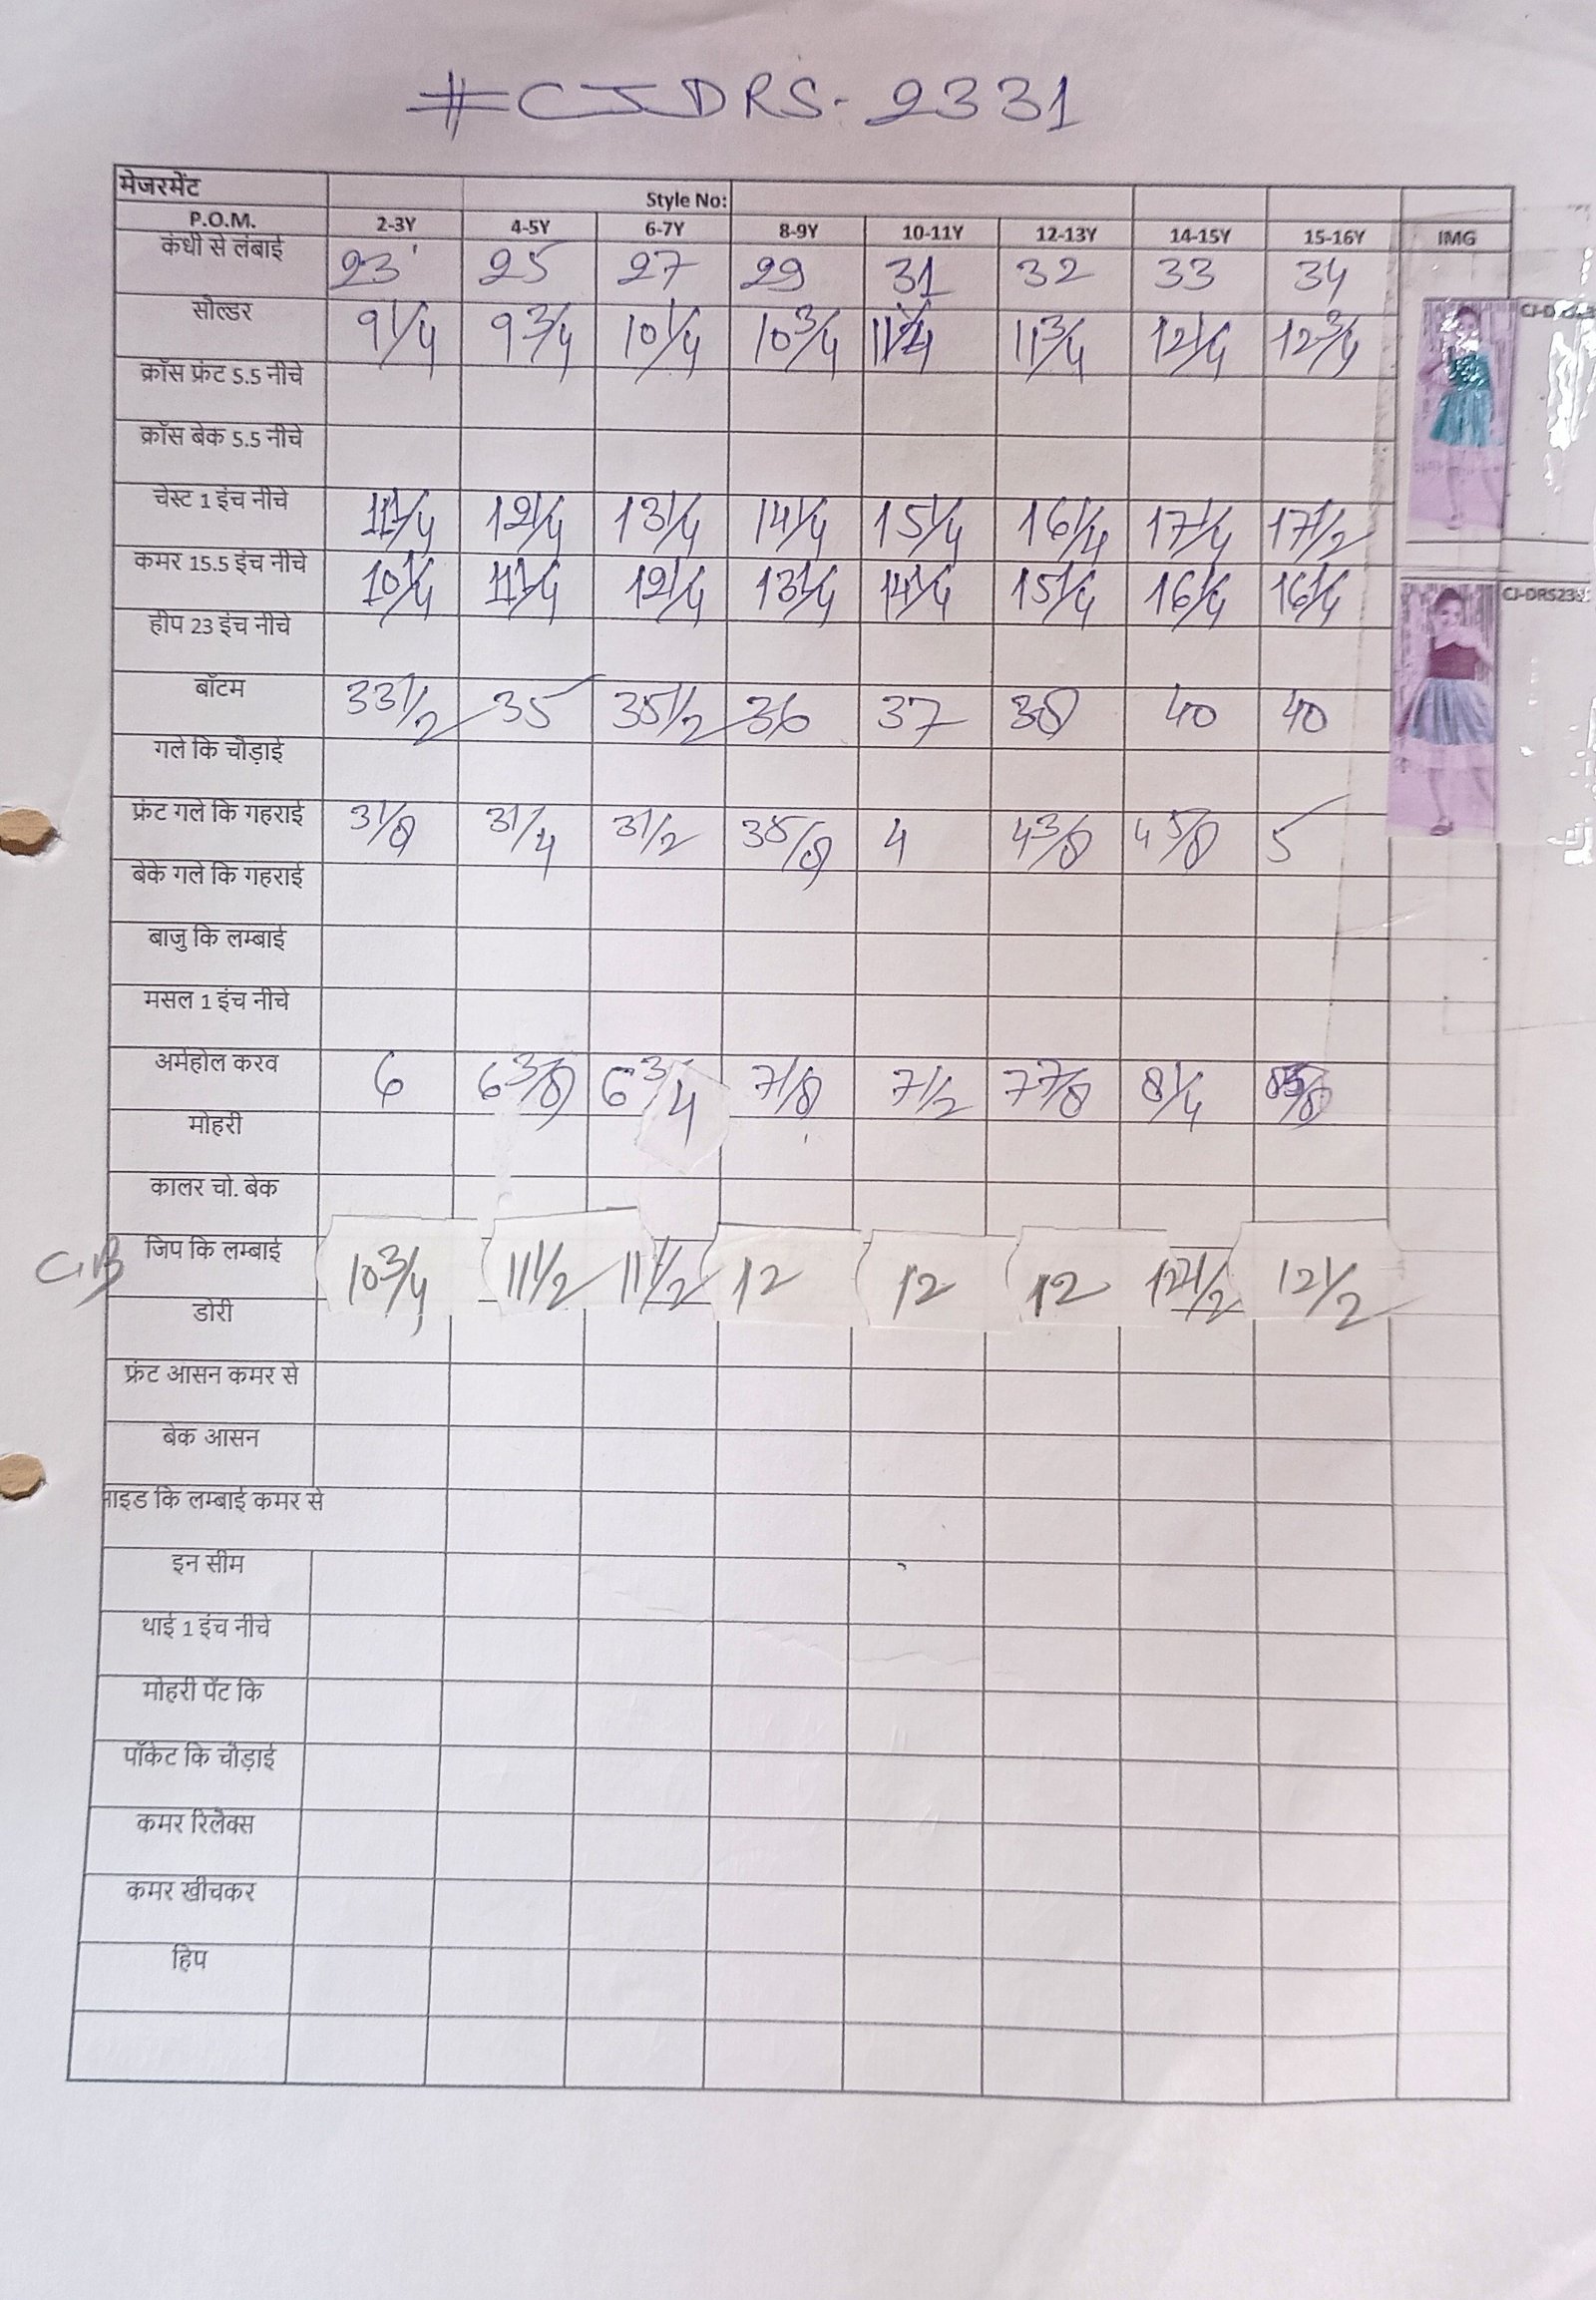 #CJDRS-2331
मेजरमेंट Style No:
P.O.M. 2-3Y 4-5Y 6-7Y 8-9Y 10-11Y 12-13Y 14-15Y 15-16Y IMG
कंधी से लंबाई 23 25 27 29 31 32 33 34
सोल्डर 9 1/4 9 3/4 10 1/4 10 3/4 11 1/4 11 3/4 12 1/4 12 3/4
क्रॉस फ्रंट 5.5 नीचे
क्रॉस बेक 5.5 नीचे
चेस्ट 1 इंच नीचे 11 1/4 12 1/4 13 1/4 14 1/4 15 1/4 16 1/4 17 1/4 17 1/2
कमर 15.5 इंच नीचे 10 1/4 11 1/4 12 1/4 13 1/4 14 1/4 15 1/4 16 1/4 16 1/4
हीप 23 इंच नीचे
बॉटम 33 1/2 35 35 1/2 36 37 38 40 40
गले कि चौड़ाई
फ्रंट गले कि गहराई 3 1/8 3 1/4 3 1/2 3 5/8 4 4 3/8 4 5/8 5
बेके गले कि गहराई
बाजु कि लम्बाई
मसल 1 इंच नीचे
अर्महोल करव 6 6 3/8 6 3/4 7 1/8 7 1/2 7 7/8 8 1/4 8 5/8
मोहरी
कालर चो. बेक
C.B जिप कि लम्बाई 10 3/4 11 1/2 11 1/2 12 12 12 12 1/2 12 1/2
डोरी
फ्रंट आसन कमर से
बेक आसन
साइड कि लम्बाई कमर से
इन सीम
थाई 1 इंच नीचे
मोहरी पेंट कि
पॉकेट कि चौड़ाई
कमर रिलैक्स
कमर खीचकर
हिप